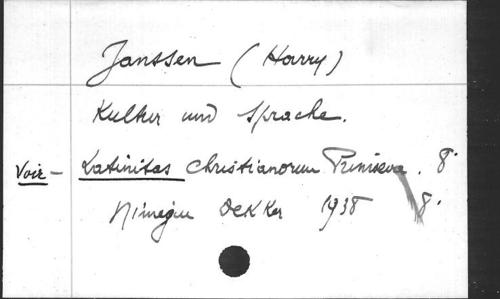 Janssen (Harry)
Kultur und Sprache.
Voir - Latinitas Christianorum Primaeva. 8°
Nimègue Dekker 1938 8°